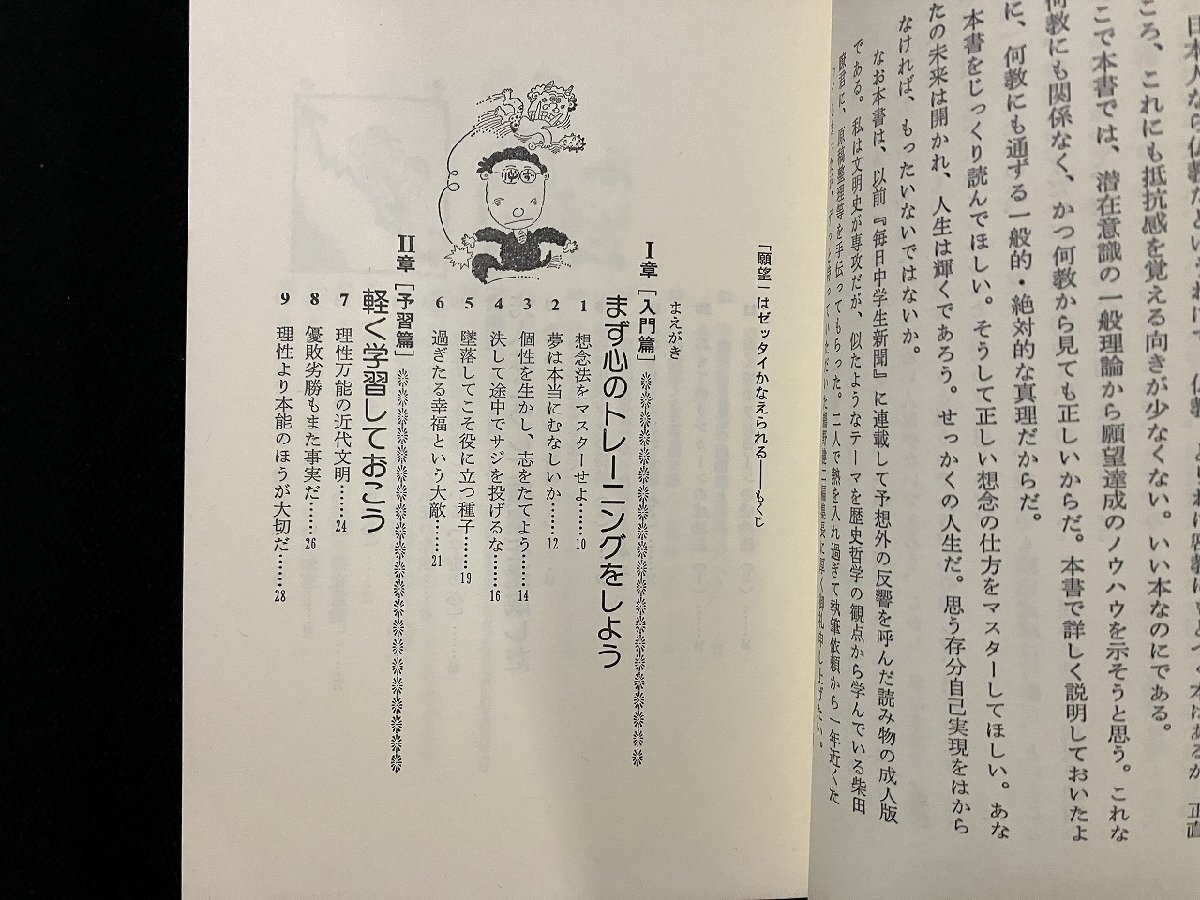 ころ、これにも抵抗感を覚える向きが少なくない。いい本なのにである。
こで本書では、潜在意識の一般理論から願望達成のノウハウを示そうと思う。これな
何教にも関係なく、かつ何教から見ても正しいからだ。本書で詳しく説明しておいたよ
に、何教にも通ずる一般的・絶対的な真理だからだ。
本書をじっくり読んでほしい。そうして正しい想念の仕方をマスターしてほしい。あな
たの未来は開かれ、人生は輝くであろう。せっかくの人生だ。思う存分自己実現をはから
なければ、もったいないではないか。
なお本書は、以前『毎日中学生新聞』に連載して予想外の反響を呼んだ読み物の成人版
である。私は文明史が専攻だが、似たようなテーマを歴史哲学の観点から学んでいる柴田
君に、原稿整理等を手伝ってもらった。二人で熱を入れ過ぎて執筆依頼から一年近くた
「願望」はゼッタイかなえられる——もくじ
まえがき
I章［入門篇］
まず心のトレーニングをしよう
1 想念法をマスターせよ……10
2 夢は本当にむなしいか……12
3 個性を生かし、志をたてよう……14
4 決して途中でサジを投げるな……16
5 墜落してこそ役に立つ種子……19
6 過ぎたる幸福という大敵……21
II章［予習篇］
軽く学習しておこう
7 理性万能の近代文明……24
8 優敗劣勝もまた事実だ……26
9 理性より本能のほうが大切だ……28